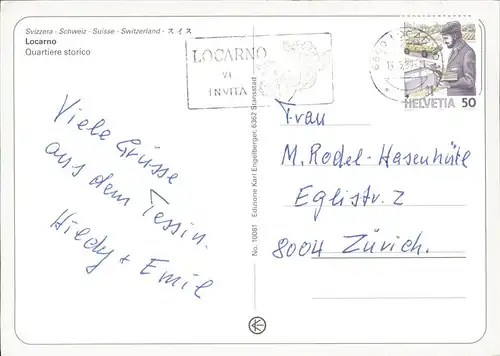 Svizzera - Schweiz - Suisse - Switzerland - スイス
Locarno
Quartiere storico
LOCARNO
VI
INVITA
HELVETIA 50
Viele Grüsse
aus dem Tessin.
Hiedy + Emil
No. 10081 Edizione Karl Engelberger, 6362 Stansstad
Frau
M. Rodel-Hasenhütl
Eglistr. 2
8004 Zürich.